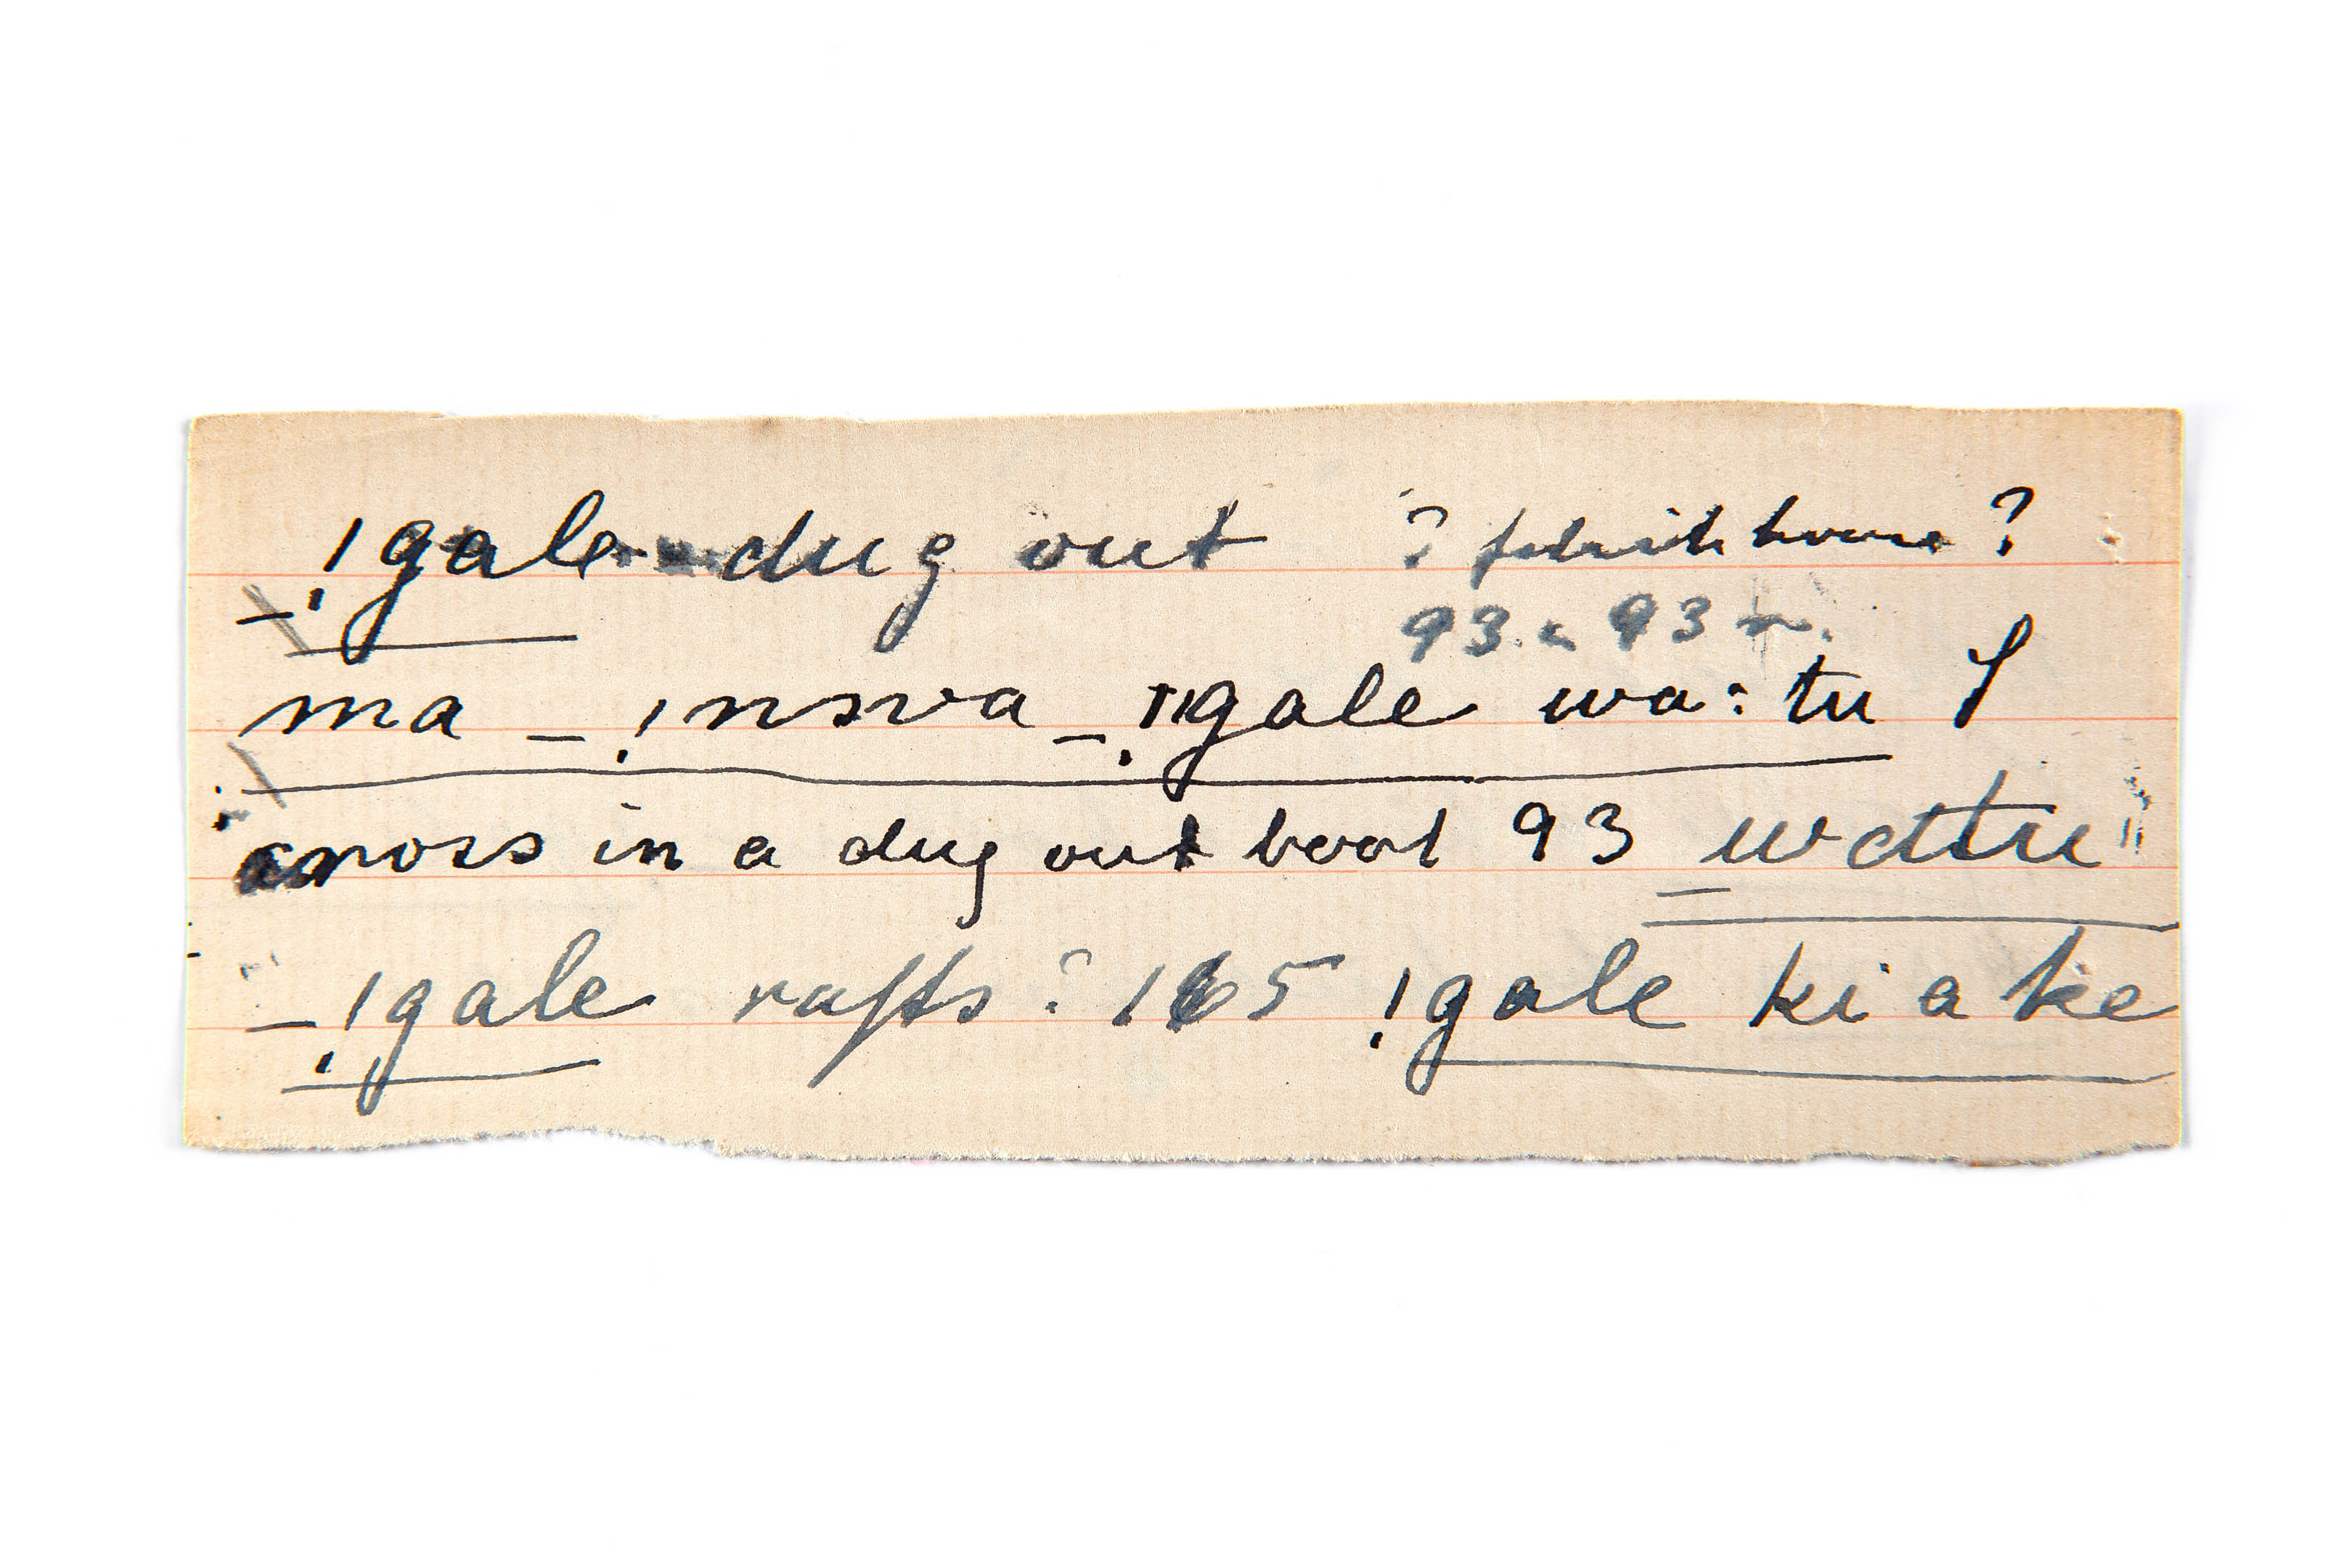 _!gale - dug out ? fetish house ?
93. 93
ma _!nswa _!gale wa:tu I
cross in a dug out boat 93 watu
_!gale rafts? 165 !gale ki a ke